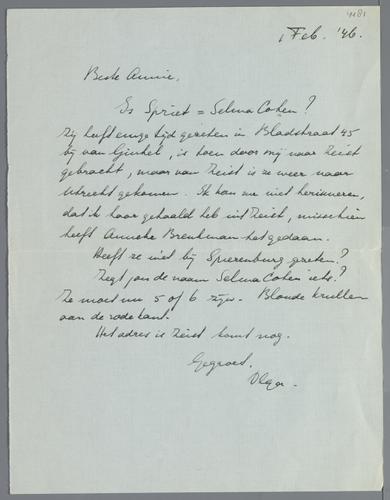 4181
1 Feb. '46.
Beste Annie,
Is Spriet = Selma Cohen?
Zij heeft enige tijd gezeten in Bladstraat 45
bij van Ginkel, is toen door mij naar Zeist
gebracht, maar van Zeist is ze weer naar
Utrecht gekomen. Ik kan me niet herinneren,
dat ik haar gehaald heb uit Zeist, misschien
heeft Anneke Brenkman het gedaan.
Heeft ze niet bij Spierenburg gezeten?
Zegt jou de naam Selma Cohen iets?
Ze moet nu 5 of 6 zijn. Blonde krullen
aan de rode kant.
Het adres in Zeist komt nog.
Gegroet,
Olga.